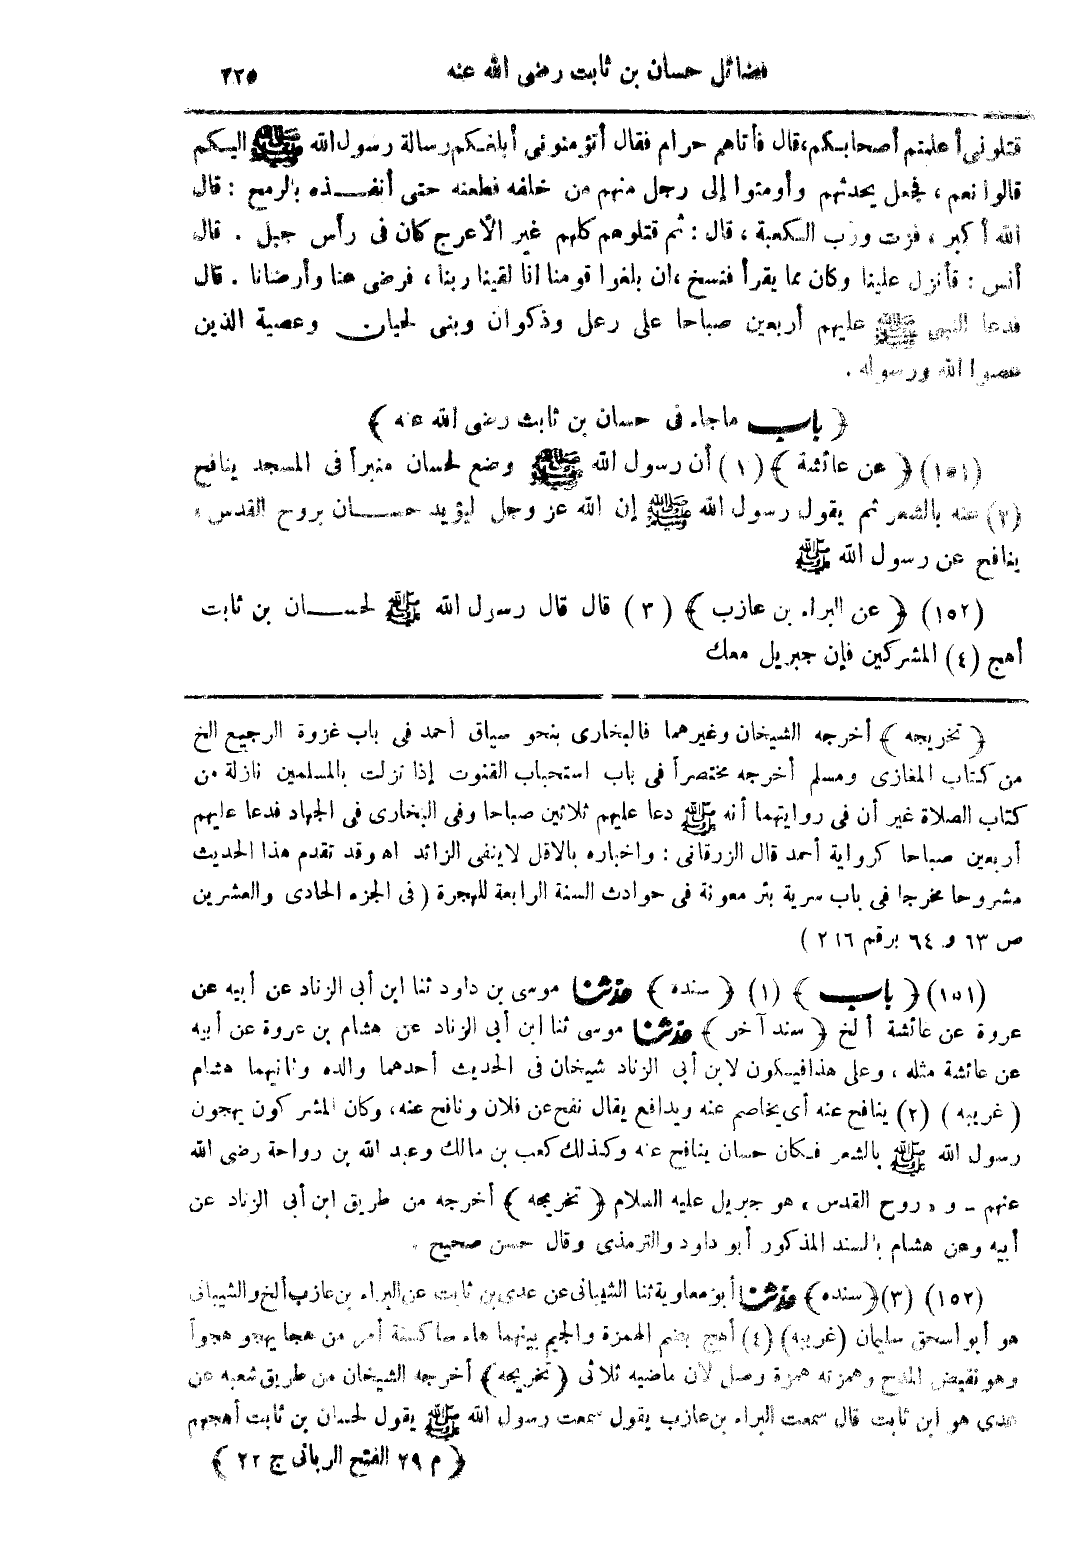 فضائل حسان بن ثابت رضى الله عنه ٢٢٥
قتلونى أعلمتم أصحابكم، قال فأتاهم حرام فقال أتؤمنونى أبلغكم رسالة رسول الله ﷺ اليكم
قالوا نعم ، فجعل يحدثهم وأومئوا إلى رجل منهم من خلفه فطعنه حتى أنفذه بالرمح : قال
الله أكبر ، فزت ورب الكعبة ، قال : ثم قتلوهم كلهم غير الأعرج كان فى رأس جبل . قال
أنس : فأنزل علينا وكان مما يقرأ فنسخ ، ان بلغوا قومنا انا لقينا ربنا ، فرضى عنا وأرضانا . قال
فدعا النبى ﷺ عليهم أربعين صباحا على رعل وذكوان وبنى لحيان وعصية الذين
عصوا الله ورسوله .
﴿ باب ماجاء فى حسان بن ثابت رضى الله عنه ﴾
(١٥١) ﴿ عن عائشة ﴾ (١) أن رسول الله ﷺ وضع لحسان منبراً فى المسجد ينافح
(٢) عنه بالشعر ثم يقول رسول الله ﷺ إن الله عز وجل ليؤيد حسان بروح القدس ،
ينافح عن رسول الله ﷺ
(١٥٢) ﴿ عن البراء بن عازب ﴾ (٣) قال قال رسول الله ﷺ لحسان بن ثابت
أهج (٤) المشركين فإن جبريل معك
﴿ تخريجه ﴾ أخرجه الشيخان وغيرهما فالبخارى بنحو سياق أحمد فى باب غزوة الرجيع الخ
من كتاب المغازى ومسلم أخرجه مختصراً فى باب استحباب القنوت إذا نزلت بالمسلمين نازلة من
كتاب الصلاة غير أن فى روايتهما أنه ﷺ دعا عليهم ثلاثين صباحا وفى البخارى فى الجهاد فدعا عليهم
أربعين صباحا كرواية أحمد قال الزرقانى : واخباره بالاقل لاينفى الزائد اه وقد تقدم هذا الحديث
مشروحا مخرجا فى باب سرية بئر معونة فى حوادث السنة الرابعة للهجرة ( فى الجزء الحادى والعشرين
ص ٦٣ و ٦٤ برقم ٢١٦ )
(١٥١) ﴿ باب ﴾ (١) ﴿ سنده ﴾ حدثنا موسى بن داود ثنا ابن أبى الزناد عن أبيه عن
عروة عن عائشة ألخ ﴿ سند آخر ﴾ حدثنا موسى ثنا ابن أبى الزناد عن هشام بن عروة عن أبيه
عن عائشة مثله ، وعلى هذا فيكون لابن أبى الزناد شيخان فى الحديث أحدهما والده وثانيهما هشام
( غريبه ) (٢) ينافح عنه أى يخاصم عنه ويدافع يقال نفح عن فلان ونافح عنه، وكان المشركون يهجون
رسول الله ﷺ بالشعر فكان حسان ينافح عنه وكذلك كعب بن مالك وعبد الله بن رواحة رضى الله
عنهم ــ و « روح القدس » هو جبريل عليه السلام ﴿ تخريجه ﴾ أخرجه من طريق ابن أبى الزناد عن
أبيه وعن هشام بالسند المذكور أبو داود والترمذى وقال حسن صحيح .
(١٥٢) (٣) ﴿سنده﴾ حدثنا أبو معاوية ثنا الشيبانى عن عدى بن ثابت عن البراء بن عازب ألخ والشيبانى
هو أبو اسحق سليمان (غريبه) (٤) أهج بضم الهمزة والجيم بينهما هاء ساكنة أمر من هجا يهجو هجواً
وهو نقيض المدح وهمزته همزة وصل لأن ماضيه ثلاثى ﴿تخريجه﴾ أخرجه الشيخان من طريق شعبه عن
عدى هو ابن ثابت قال سمعت البراء بن عازب يقول سمعت رسول الله ﷺ يقول لحسان بن ثابت أهجهم
﴿ م ٢٩ الفتح الربانى ج ٢٢ ﴾